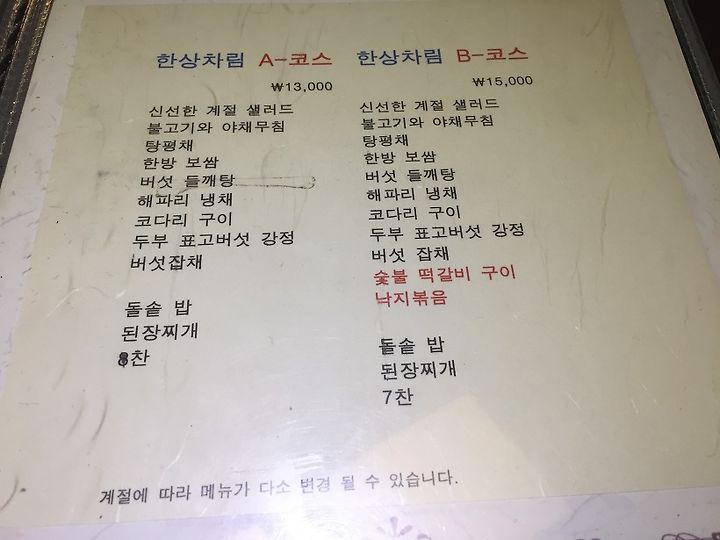 한상차림 A-코스
₩13,000
신선한 계절 샐러드
불고기와 야채무침
탕평채
한방 보쌈
버섯 들깨탕
해파리 냉채
코다리 구이
두부 표고버섯 강정
버섯잡채
돌솥 밥
된장찌개
8찬
한상차림 B-코스
₩15,000
신선한 계절 샐러드
불고기와 야채무침
탕평채
한방 보쌈
버섯 들깨탕
해파리 냉채
코다리 구이
두부 표고버섯 강정
버섯 잡채
숯불 떡갈비 구이
낙지볶음
돌솥 밥
된장찌개
7찬
계절에 따라 메뉴가 다소 변경 될 수 있습니다.